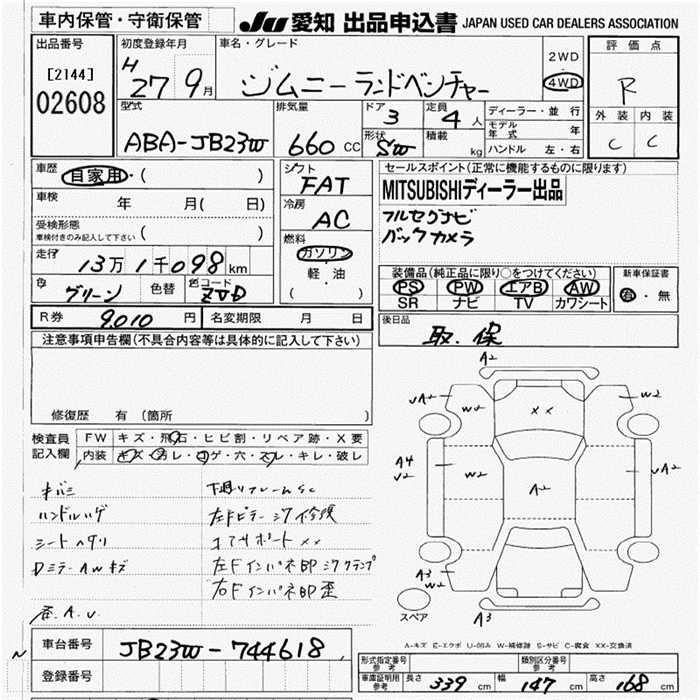 車内保管・守衛保管
JU 愛知 出品申込書 JAPAN USED CAR DEALERS ASSOCIATION
出品番号
[2144]
02608
初度登録年月
H 27 9月
車名・グレード
ジムニー ランドベンチャー
2WD
4WD
評価点
R
外装 内装
C C
型式
ABA-JB23W
排気量
660 CC
ドア 3
形状 SW
定員 4 人
積載 kg
ディーラー・並行
モデル年式 年
ハンドル 左・右
車歴 自家用・( )
車検 年 月( 日)
受検形態
車検付きのみ記入して下さい ( )
走行 13万 1千098 km
色 グリーン 色替 色コード ZVD
シフト
FAT
冷房
AC
燃料
ガソリン
軽・油
( )
セールスポイント(正常に機能するものに限ります)
MITSUBISHIディーラー出品
フルセグナビ
バックカメラ
装備品(純正品に限り○をつけてください)
PS PW エアB AW
SR ナビ TV カワシート
新車保証書
有・無
R券 9010 円 名変期限 月 日
後日品
取.保
注意事項申告欄(不具合内容等は具体的に記入して下さい)
修復歴 有(箇所 )
検査員記入欄
FW キズ・飛石・ヒビ割・リペア跡・X要
内装 キズ・汚レ・コゲ・穴・スレ・キレ・破レ
キバミ
ハンドルハゲ
シートヘタリ
DミラーAWキズ
下廻りフレームSC
左Fピラー シワ 修換
コアサポート XX
左FインパネBP シワ クランプ
右FインパネBP 歪
A2
UA2 W2 XX W2
A4
V2
W2 A2 W2 UA2
A3
W2
スペア
A3
A-キズ E-エクボ U-凹み W-補修跡 S-サビ C-腐食 XX-交換済
車台番号 JB23W-744618
登録番号
型式指定番号 参考
類別区分番号 参考
車庫証明用 参考 長さ 339 cm 幅 147 cm 高さ 168 cm